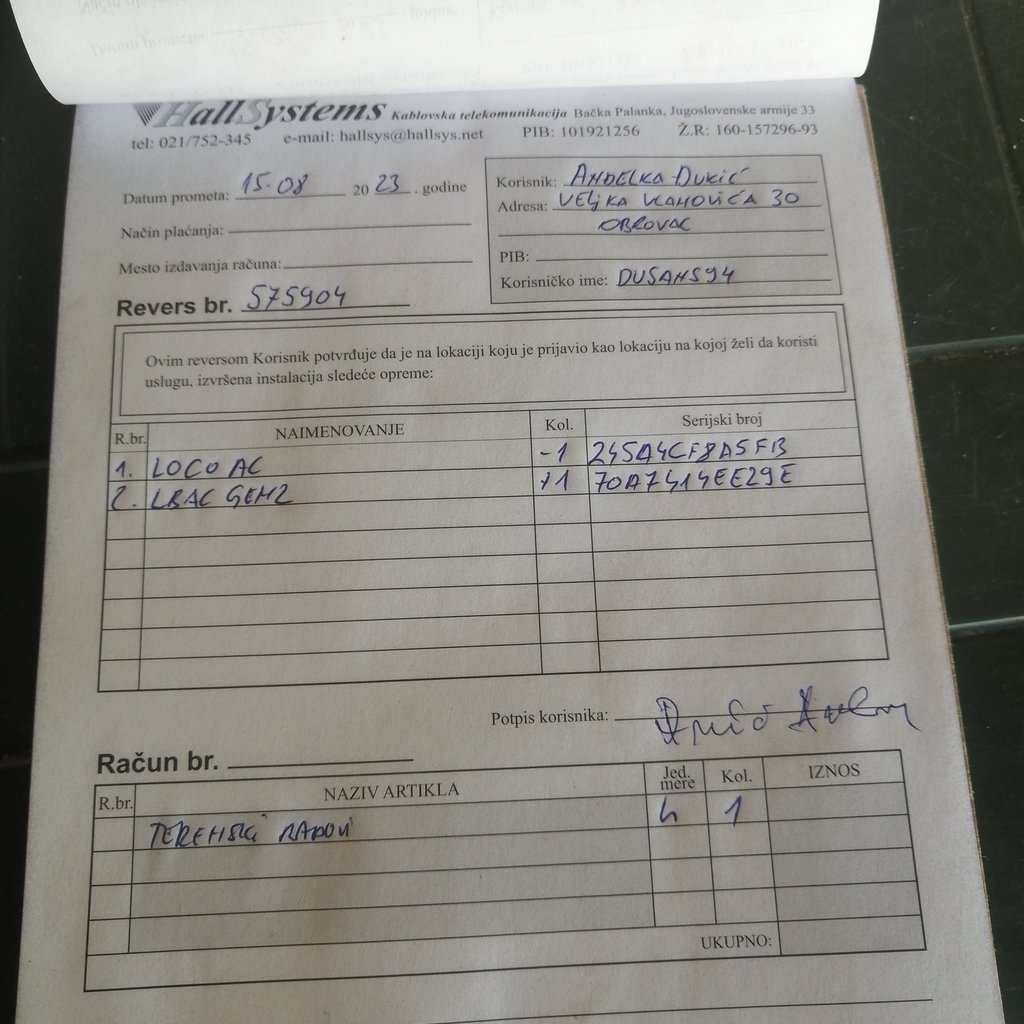 HallSystems Kablovska telekomunikacija Bačka Palanka, Jugoslovenske armije 33
tel: 021/752-345 e-mail: hallsys@hallsys.net PIB: 101921256 Ž.R: 160-157296-93
Datum prometa: 15.08 2023. godine
Način plaćanja:
Mesto izdavanja računa:
Revers br. 575904
Korisnik: ANĐELKA DUKIĆ
Adresa: VELJKA VLAHOVIĆA 30
OBROVAC
PIB:
Korisničko ime: DUSANS94
Ovim reversom Korisnik potvrđuje da je na lokaciji koju je prijavio kao lokaciju na kojoj želi da koristi
uslugu, izvršena instalacija sledeće opreme:
R.br. NAIMENOVANJE Kol. Serijski broj
1. LOCO AC -1 245A4CF8A5FB
2. LBAC GEN2 +1 70A7414EE29E
Potpis korisnika:
Račun br.
R.br. NAZIV ARTIKLA Jed. mere Kol. IZNOS
TERENSKI RADOVI h 1
UKUPNO: